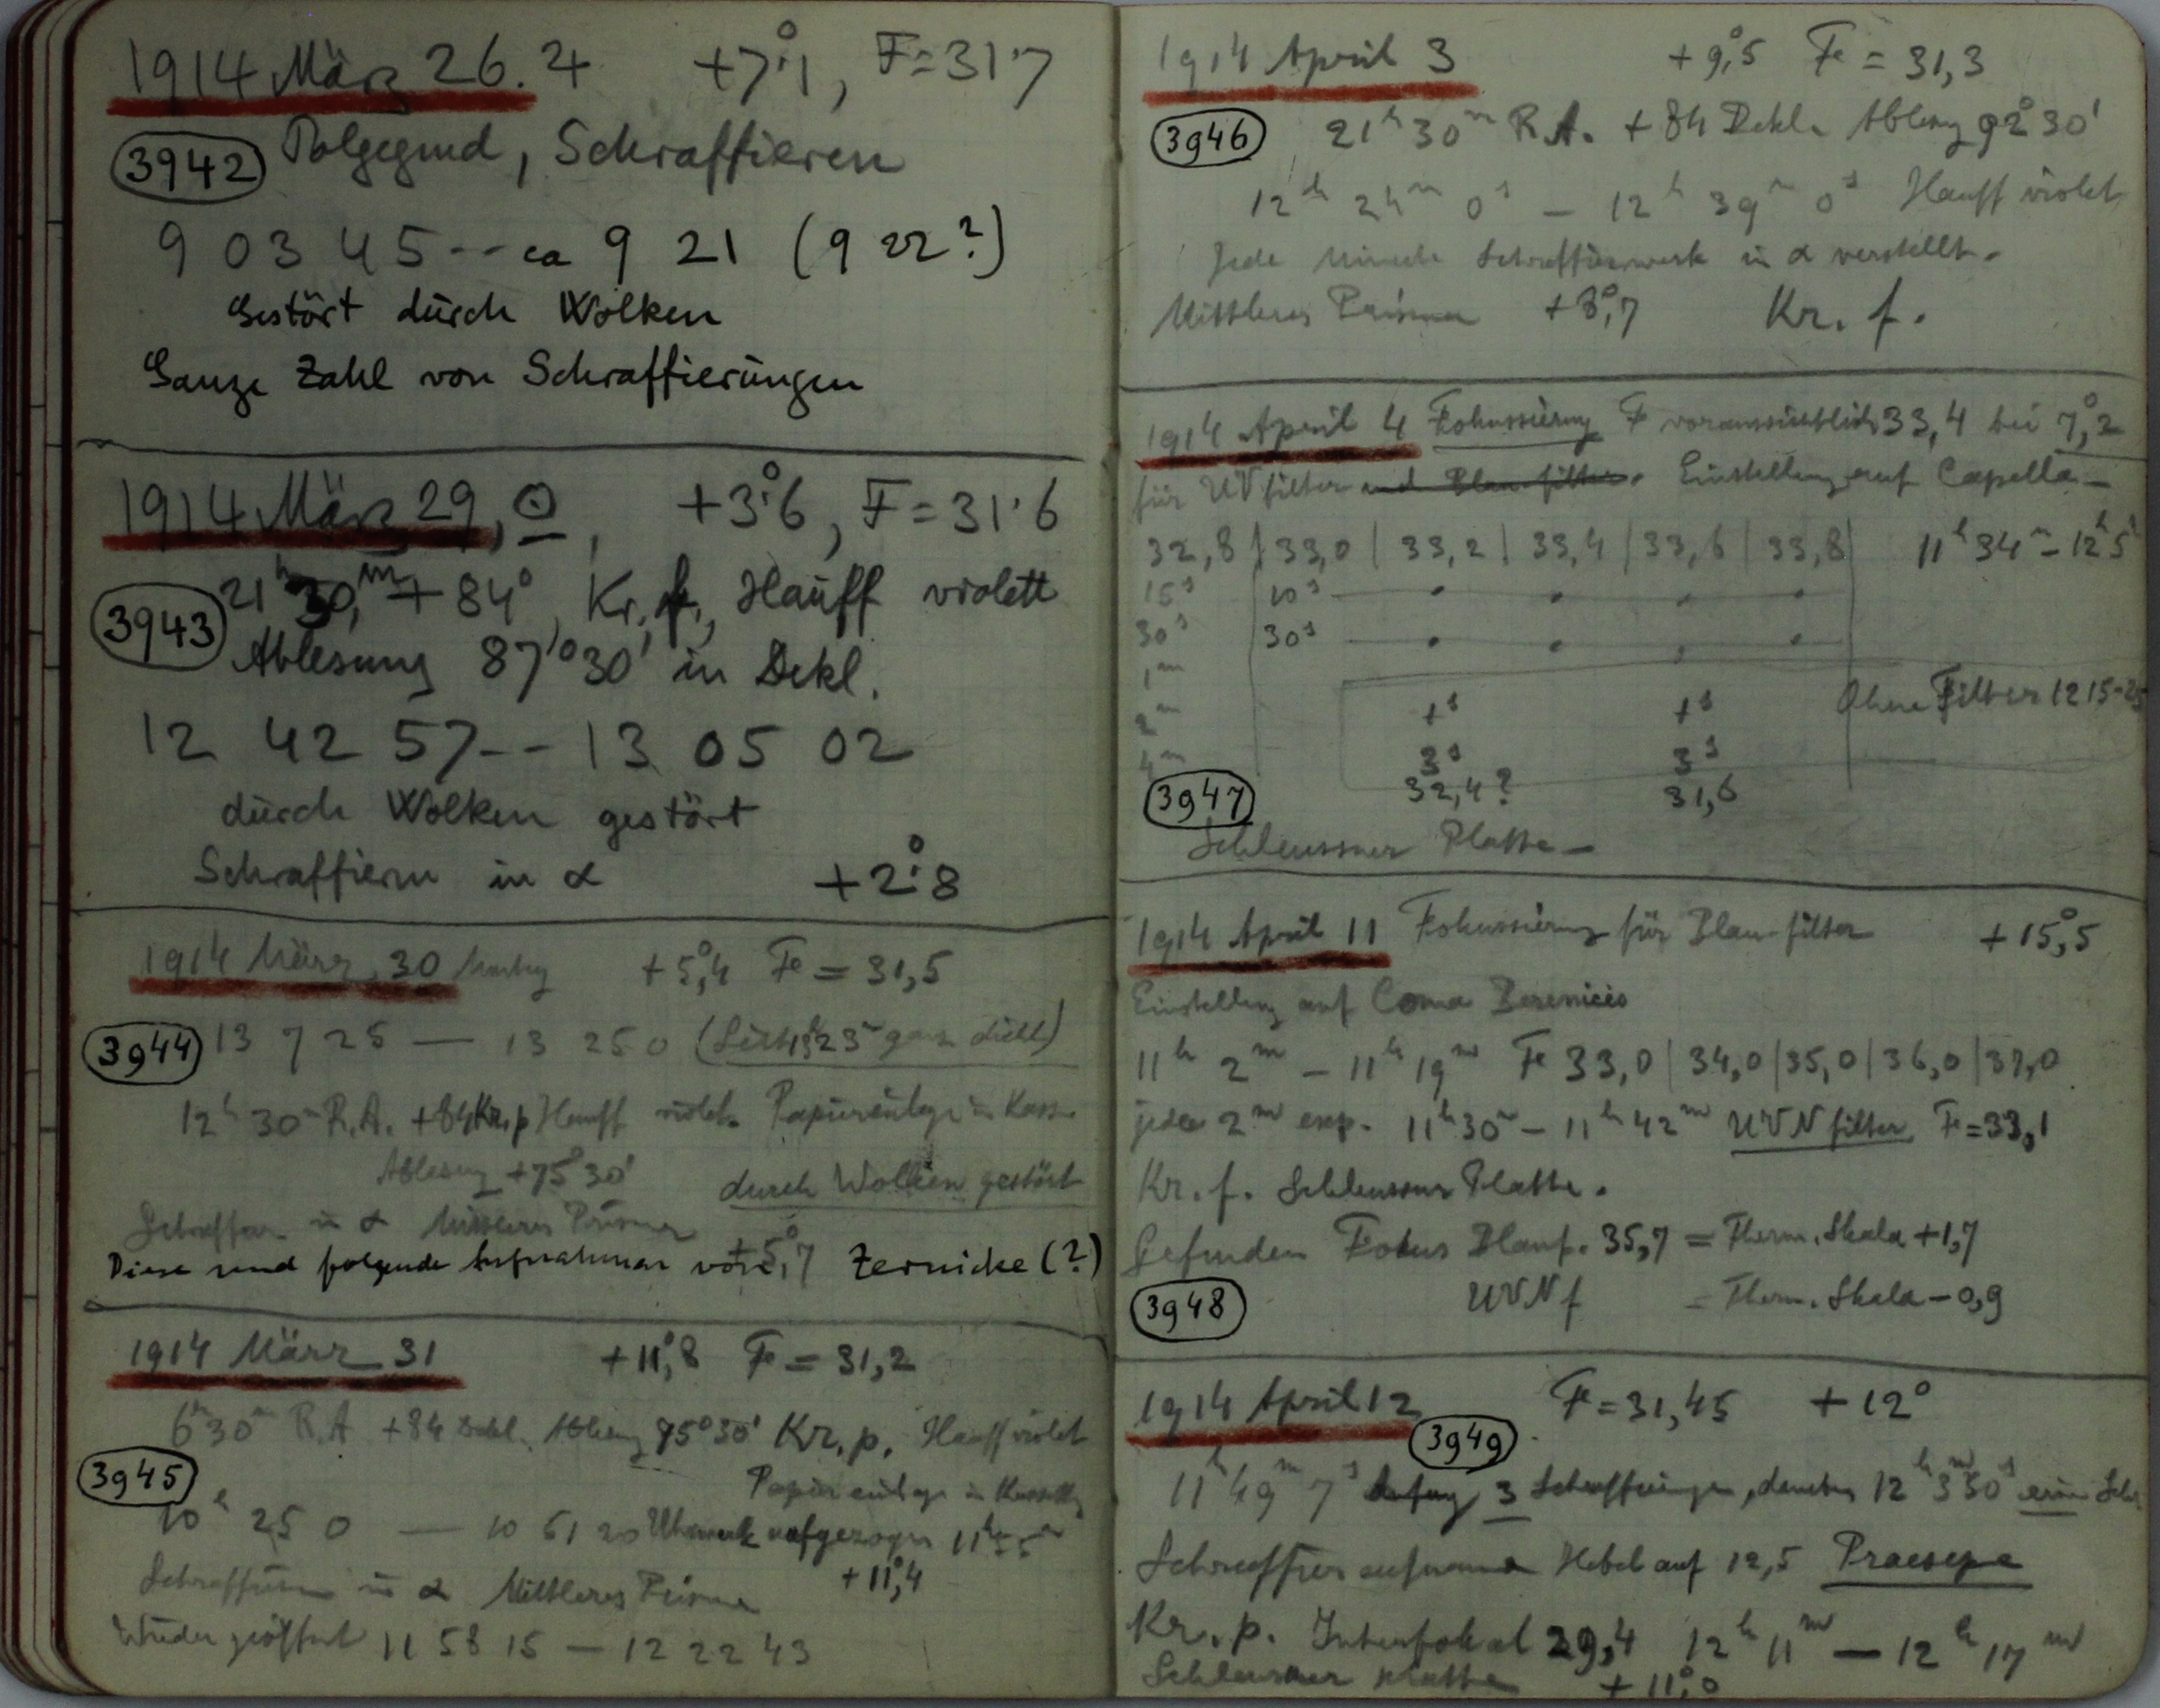 1914 März 26. ♃ +7°.1, F=31.7
3942 Polgegend, Schraffieren
9 03 45 -- ca 9 21 (9 22?)
Gestört durch Wolken
Ganze Zahl von Schraffierungen
1914 März 29, ☉, +3°.6, F=31.6
21h 30m, +84°, Kr. f., Hauff violett
3943
Ablesung 87°30' in Dekl.
12 42 57 -- 13 05 02
durch Wolken gestört
Schraffieren in α +2°.8
1914 März 30 +5°,4 F = 31,5
3944 13 7 25 — 13 25 0 (Seit 13h 23m ganz dicht)
12h 30m R.A. +84 Kr. p Hauff violet. Papiereinlage in Kass.
Ablesung +75°30' durch Wolken gestört
Schraffier. in α Mittleres Prisma
+5°,7
Diese und folgende Aufnahmen von Zernicke (?)
1914 März 31 +11°,8 F = 31,2
6h30m R.A. +84 Dekl. Ablesung 75°30' Kr. p. Hauff violet
3945 Papiereinlage in Kassette
10h 25 0 — 10 51 20 Uhrwerk aufgezogen 11h55m
Schraffieren in α Mittleres Prisma +11°,4
Wieder geöffnet 11 58 15 — 12 22 43
1914 April 3 +9°,5 F = 31,3
3946 21h 30m R.A. +84 Dekl. Ablesung 92°30'
12h 24m 0s — 12h 39m 0s Hauff violet
Jede Minute Schraffierwerk in α verstellt.
Mittleres Prisma +8°,7 Kr. f.
1914 April 4 Fokussierung F voraussichtlich 33,4 bei 7°,2
für UV filter und Blaufilter. Einstellung auf Capella —
32,8 | 33,0 | 33,2 | 33,4 | 33,6 | 33,8 11h 34m – 12h 5
15s 10s — • • • •
30s 30s — • • • •
1m
2m 1s 1s Ohne Filter 12 15-
4m 3s 3s
3947 32,4? 31,6
Schleussner Platte —
1914 April 11 Fokussierung für Blau-filter +15°,5
Einstellung auf Coma Berenices
11h 2m – 11h 19m F 33,0 | 34,0 | 35,0 | 36,0 | 37,0
jedes 2m exp. 11h30m – 11h 42m UVN filter F=33,1
Kr. f. Schleussner Platte.
Gefunden Fokus Blauf. 35,7 = Therm. Skala +1,7
3948 UVN f = Therm. Skala – 0,9
1914 April 12 F=31,45 +12°
3949
11h 49m 7s Anfang 3 Schraffierungen, 12h 3m 50s eine
Schraffieraufnahme Hebel auf 12,5 Praesepe
Kr. p. Intrafokal 29,4 12h 11m — 12h 17m
Schleussner Platte +11°,0